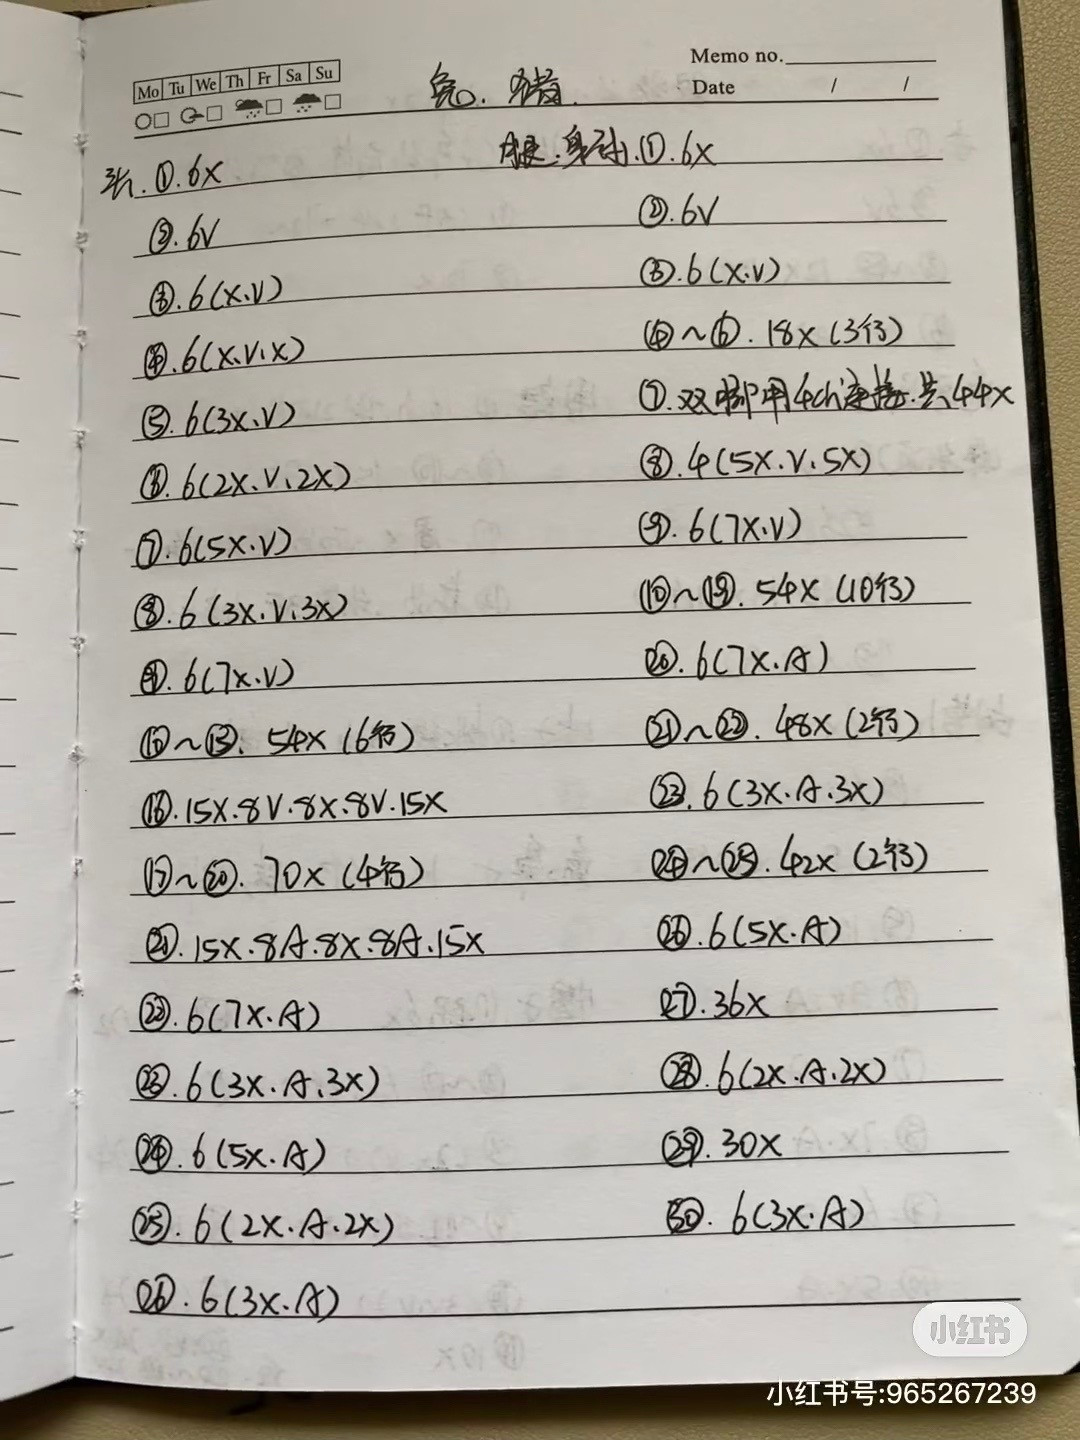 Mo Tu We Th Fr Sa Su
Memo no.
Date / /
兔.猪
头.①.6X
②.6V
③.6(X.V)
④.6(X.V.X)
⑤.6(3X.V)
⑥.6(2X.V.2X)
⑦.6(5X.V)
⑧.6(3X.V.3X)
⑨.6(7X.V)
⑩~⑮.54X(6行)
⑯.15X.8V.8X.8V.15X
⑰~⑳.70X(4行)
㉑.15X.8A.8X.8A.15X
㉒.6(7X.A)
㉓.6(3X.A.3X)
㉔.6(5X.A)
㉕.6(2X.A.2X)
㉖.6(3X.A)
腿.身子.①.6X
②.6V
③.6(X.V)
④~⑥.18X(3行)
⑦.双脚用4ch连接.共44X
⑧.4(5X.V.5X)
⑨.6(7X.V)
⑩~⑲.54X(10行)
⑳.6(7X.A)
㉑~㉒.48X(2行)
㉓.6(3X.A.3X)
㉔~㉕.42X(2行)
㉖.6(5X.A)
㉗.36X
㉘.6(2X.A.2X)
㉙.30X
㉚.6(3X.A)
小红书
小红书号:965267239